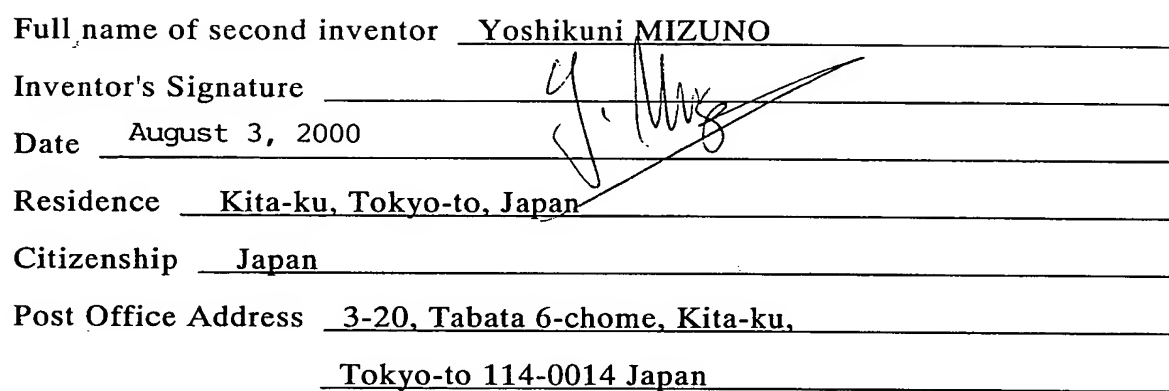 Full name of second inventor Yoshikuni MIZUNO
Inventor's Signature
Date August 3, 2000
Residence Kita-ku, Tokyo-to, Japan
Citizenship Japan
Post Office Address 3-20, Tabata 6-chome, Kita-ku,
Tokyo-to 114-0014 Japan